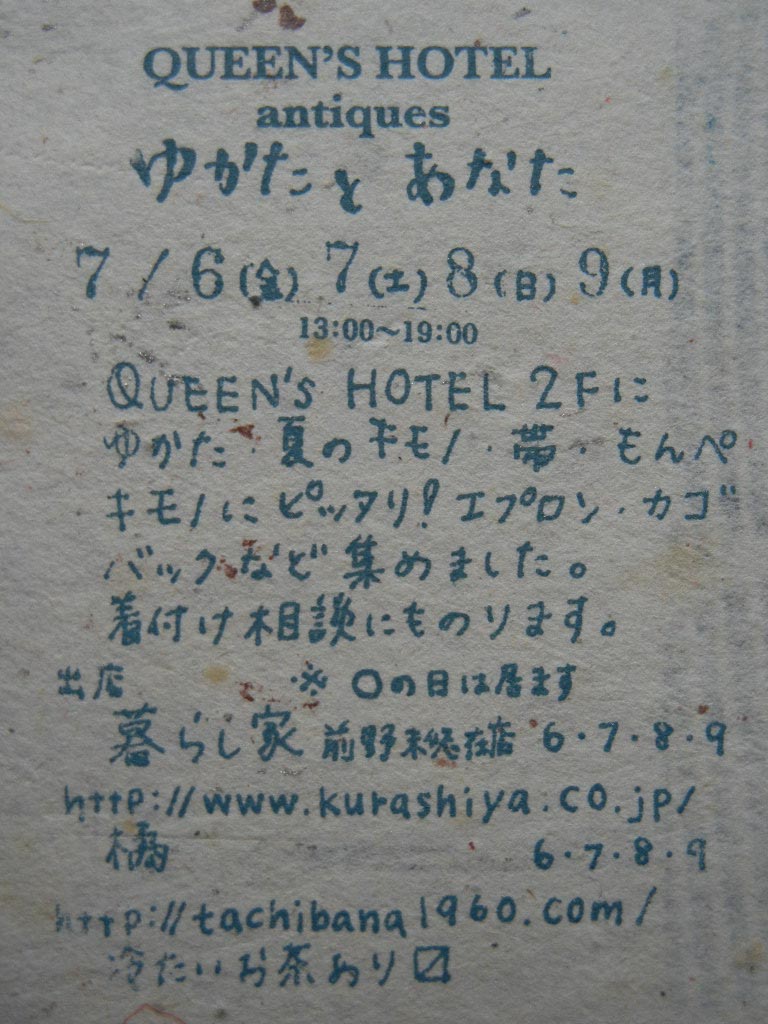 QUEEN'S HOTEL
antiques
ゆかたと あなた
7/6(金)7(土)8(日)9(月)
13:00〜19:00
QUEEN'S HOTEL 2Fに
ゆかた・夏のキモノ・帯・もんぺ
キモノにピッタリ!エプロン・カゴ
バックなど集めました。
着付け相談にものります。
出店 ※ ○の日は居ます
暮らし家 前野 在店 6・7・8・9
http://www.kurashiya.co.jp/
橘 6・7・8・9
http://tachibana1960.com/
冷たいお茶あり〼